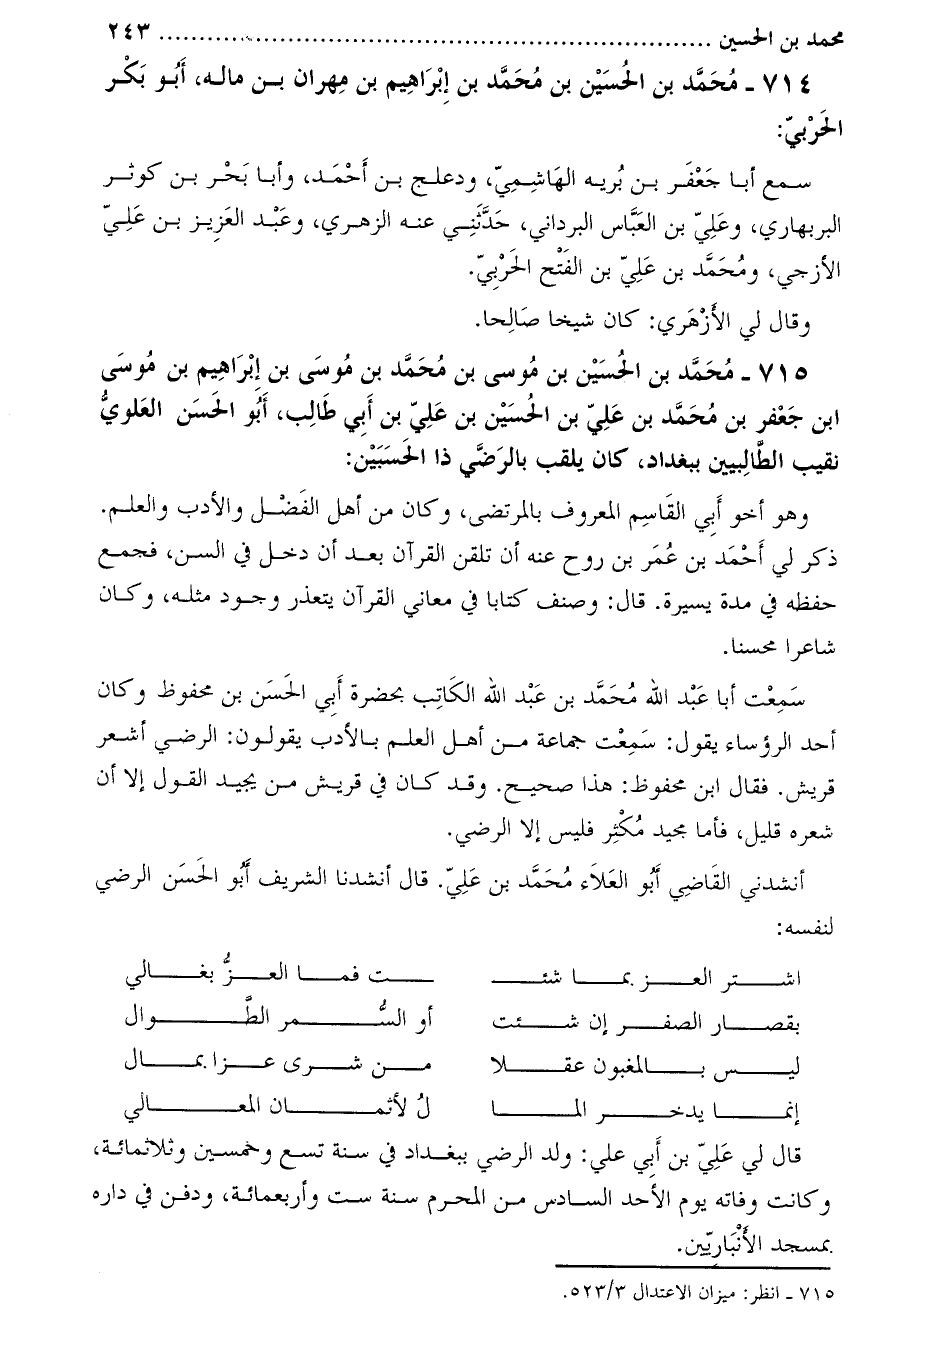 محمد بن الحسين ................................................................ ٢٤٣
٧١٤ ـ مُحَمَّد بن الحُسَيْن بن مُحَمَّد بن إبْرَاهِيم بن مِهران بـن مالـه، أَبُـو بَكْـر
الحَرْبيّ:
سـمع أبـا جَعْفَـر بـن بُريـه الهَاشِمِـيّ، ودعلـج بـن أَحْمَـد، وأبـا بَحْـر بـن كوثـر
البربهاري، وعَلِيّ بن العَبَّاس البرداني، حَدَّثَنِـي عنـه الزهـري، وعَبْـد العَزِيـز بـن عَلِـيّ
الأزجي، ومُحَمَّد بن عَلِيّ بن الفَتْح الحَرْبِيّ.
وقال لي الأَزْهَري: كان شيخا صَالِحا.
٧١٥ ـ مُحَمَّد بن الحُسَيْن بن مُوسى بن مُحَمَّد بن مُوسَى بن إِبْرَاهِيم بن مُوسَى
ابن جَعْفر بن مُحَمَّد بن عَلِيّ بن الحُسَيْن بن عَلِيّ بن أَبي طَالِب، أَبُو الحَسَن العَلويُّ
نقيب الطَّالِبيين ببغداد، كان يلقب بالرَضَّي ذا الحَسَبَيْن:
وهو أخو أَبي القَاسِم المعروف بالمرتضى، وكان من أهل الفَضْـل والأدب والعلم.
ذكر لي أَحْمَد بن عُمَر بن روح عنه أن تلقن القرآن بعـد أن دخـل في السـن، فجمـع
حفظه في مدة يسيرة. قال: وصنف كتابا في معاني القرآن يتعذر وجـود مثلـه، وكـان
شاعرا محسنا.
سَمِعْت أبا عَبْد الله مُحَمَّد بن عَبْد الله الكَاتِب بحضرة أَبي الحَسَن بن محفوظ وكان
أحد الرؤساء يقول: سَمِعْت جماعة مـن أهـل العلـم بـالأدب يقولـون: الرضـي أشـعر
قريش. فقال ابن محفوظ: هذا صحيح. وقد كـان في قريـش مـن يجيـد القـول إلا أن
شعره قليل، فأما مجيد مُكْثِر فليس إلا الرضي.
أنشدني القَاضِي أَبُو العَلاَء مُحَمَّد بن عَلِيّ. قال أنشدنا الشريف أَبُو الحَسَن الرضي
لنفسـه:
اشـتر العـز بمـا شئـ ـت فمـا العـزُّ بغـالي
بقصـار الصفـر إن شـئت أو السُّـمر الطَّـوال
ليـس بـالمغبون عقـلا مـن شـرى عـزا بمـال
إنمـا يدخـر المـا لُ لأثمـان المعـالي
قال لي عَلِيّ بن أَبي علي: ولد الرضي ببغـداد في سـنة تسـع وخمسـين وثلاثمائـة،
وكانت وفاته يوم الأحد السـادس مـن المحـرم سـنة سـت وأربعمائـة، ودفـن في داره
بمسجد الأَنْبَاريّين.
٧١٥ ـ انظر: ميزان الاعتدال ٥٢٣/٣.